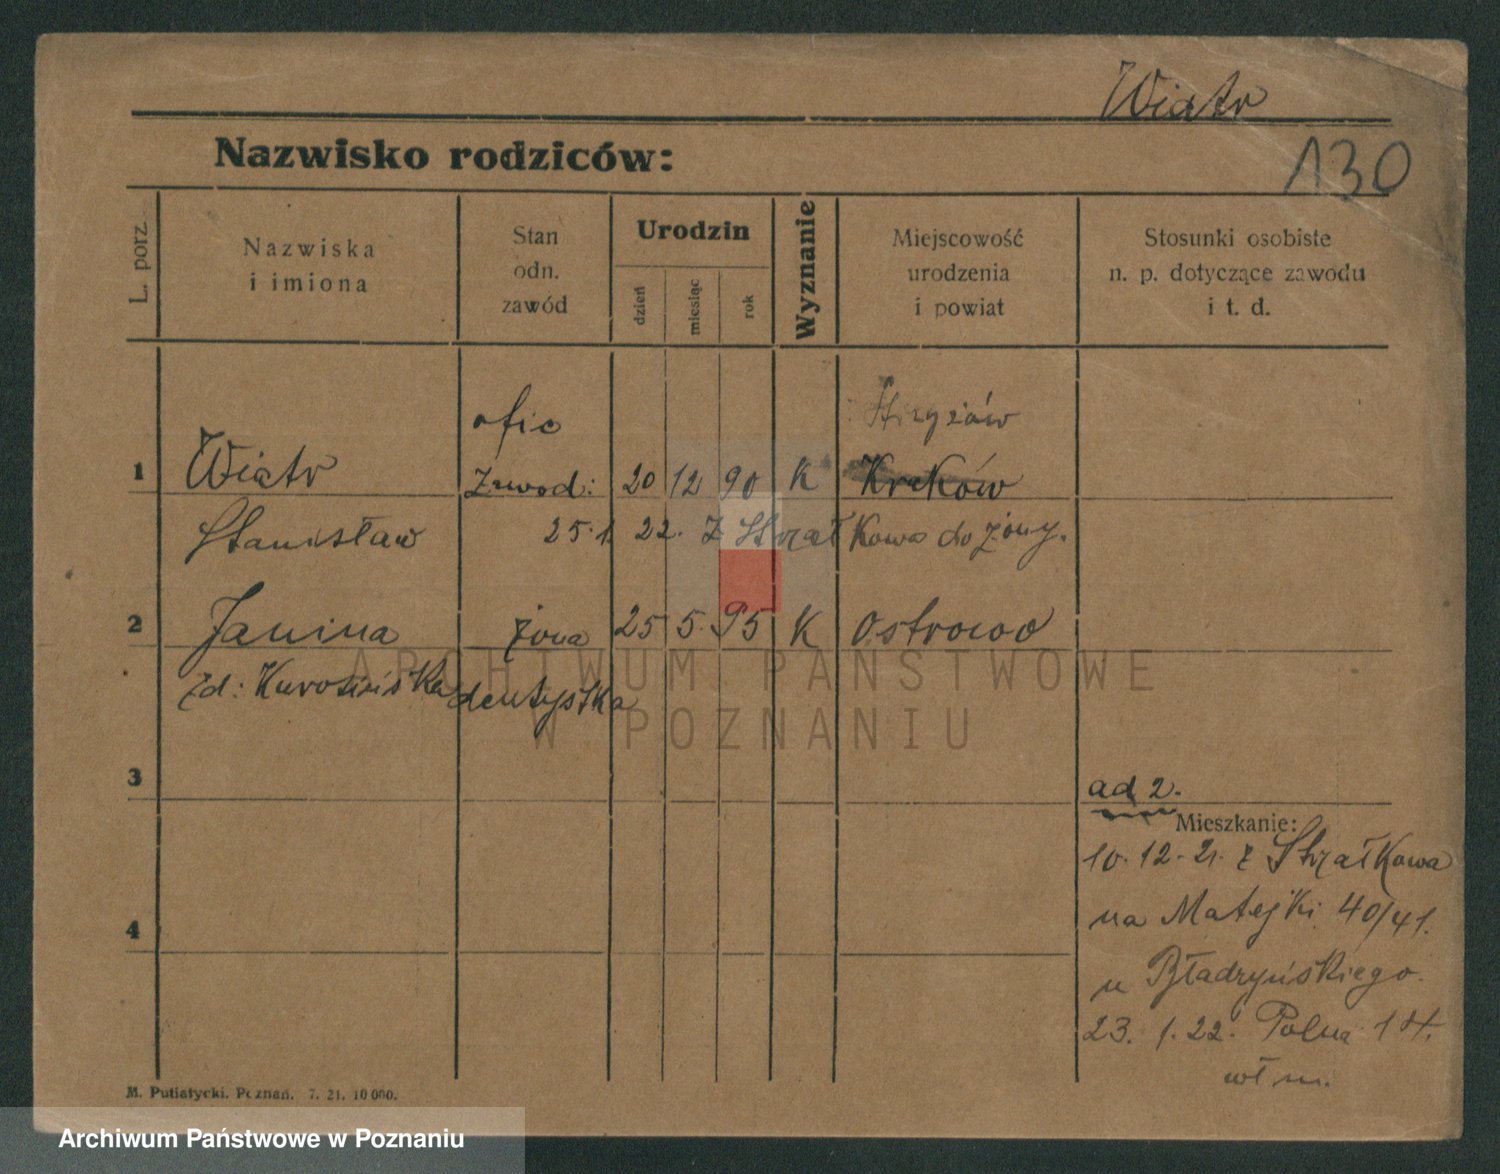 Wiatr
130
Nazwisko rodziców:
L. porz.
Nazwiska
i imiona
Stan
odn.
zawód
Urodzin
dzień
miesiąc
rok
Wyznanie
Miejscowość
urodzenia
i powiat
Stosunki osobiste
n. p. dotyczące zawodu
i t. d.
ofic
1 Wiatr zawod: 20 12 90 K Kraków
Stanisław 25.1. 22. z Strzałkowa do żony.
2 Janina żona 25 5. 95 K Ostrowo
zd: dentystka
3
ad 2.
Mieszkanie:
10. 12. 21. z Strzałkowa
na Matejki 40/41.
4
u
23. 1. 22. Polna
wł m.
M. Putiatycki. Poznań. 7. 21. 10 000.
ARCHIWUM PAŃSTWOWE
W POZNANIU
Archiwum Państwowe w Poznaniu